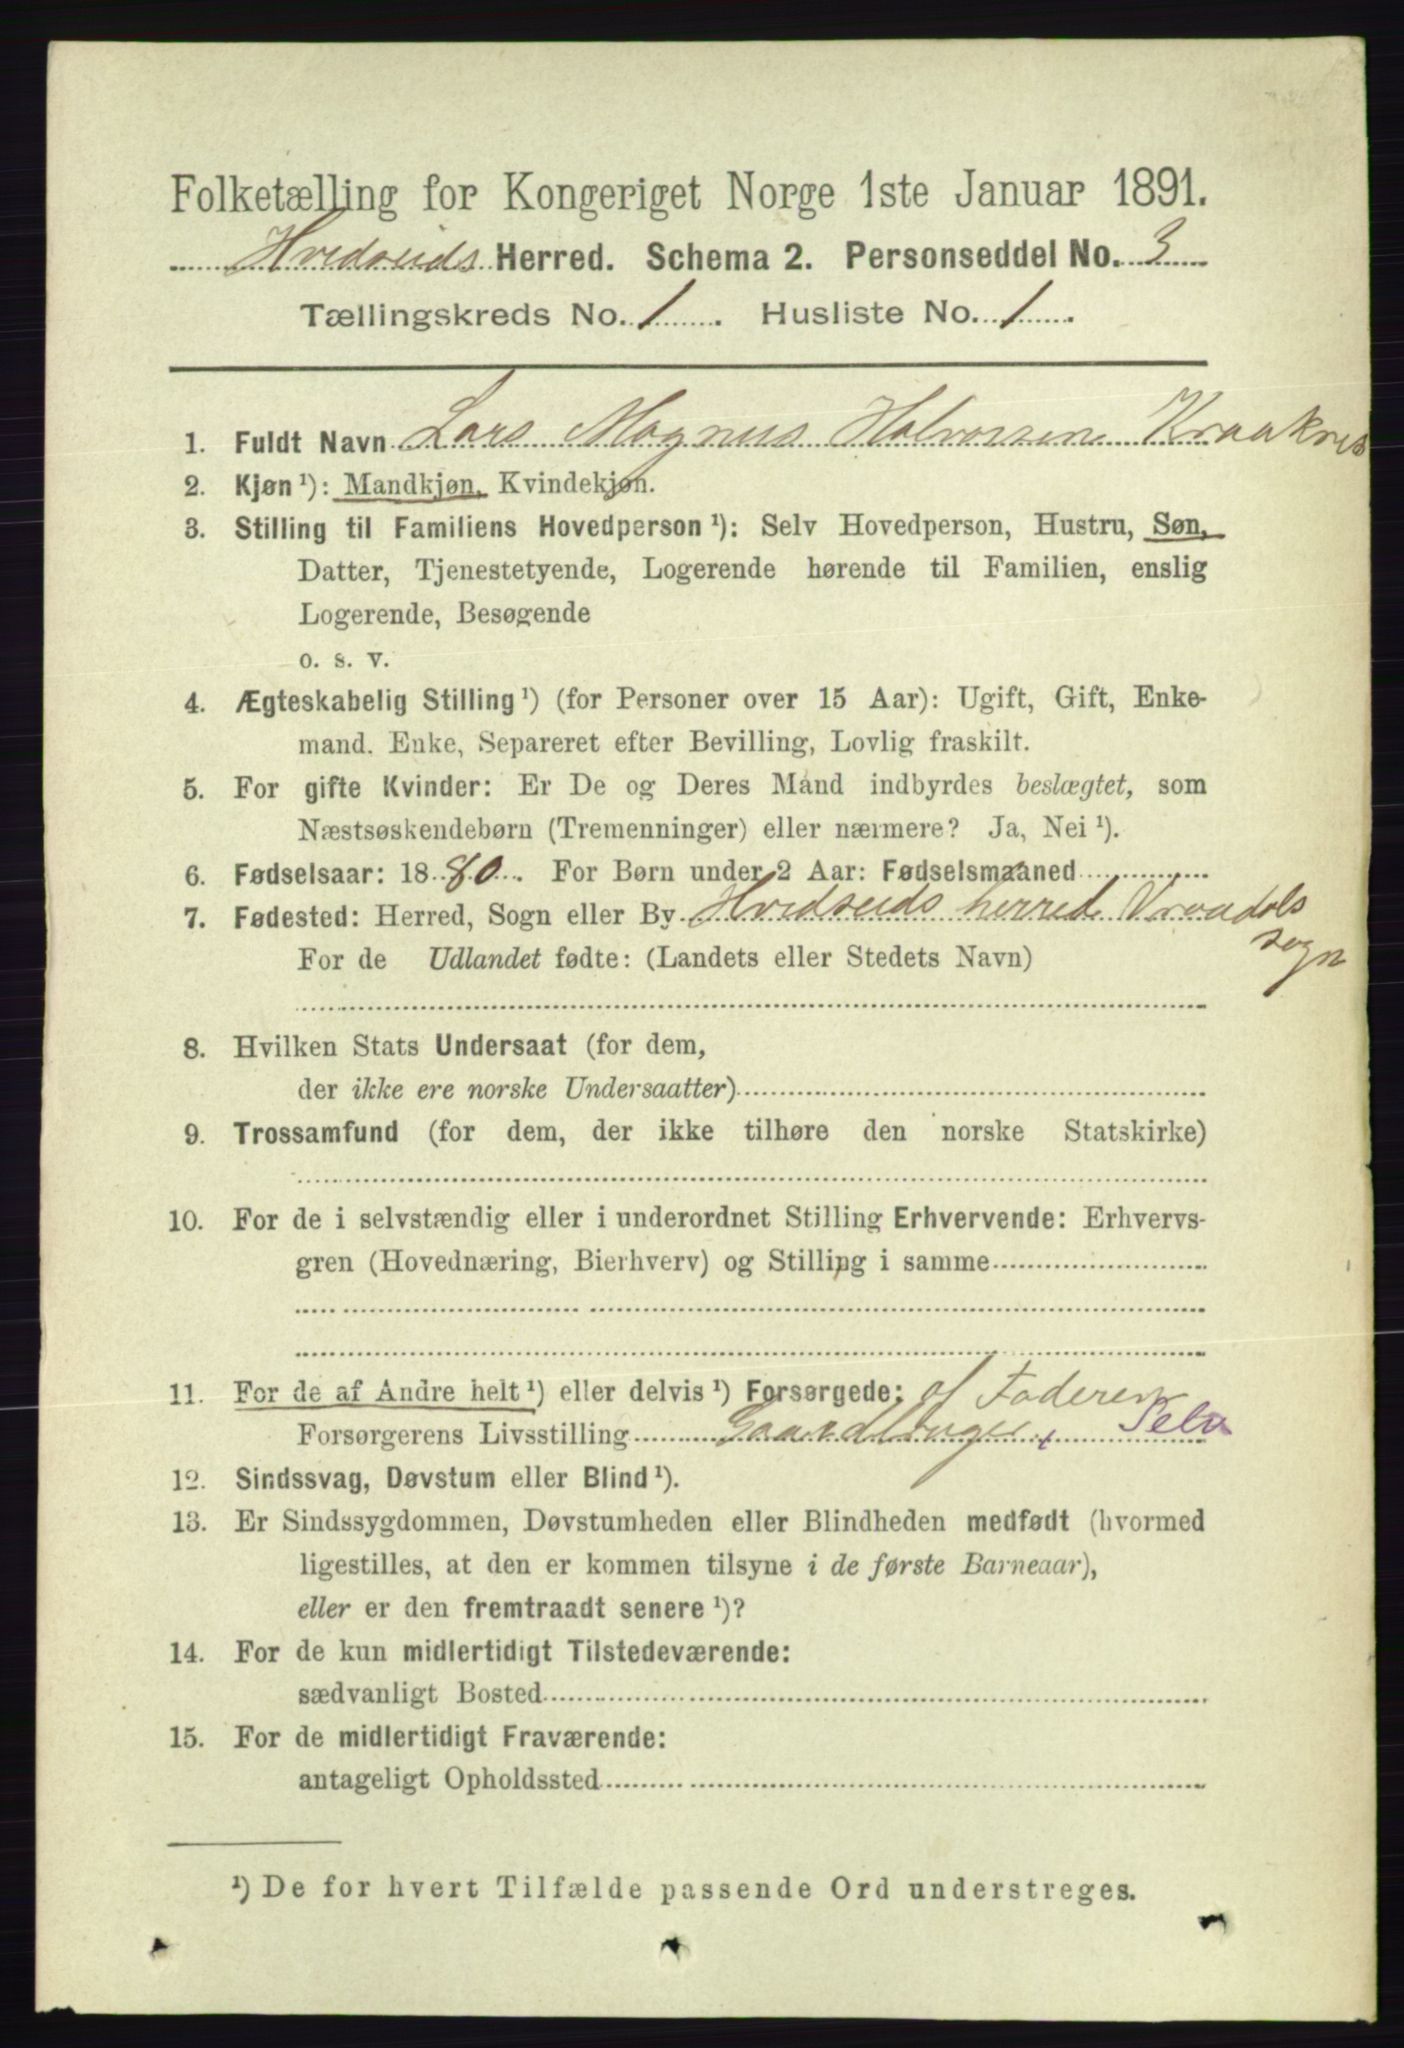 Folketælling for Kongeriget Norge 1ste Januar 1891.
Hvidseids Herred. Schema 2. Personseddel No. 3
Tællingskreds No. 1. Husliste No. 1.
1. Fuldt Navn Lars Magnus Halvorsen
2. Kjøn¹): Mandkjøn, Kvindekjøn.
3. Stilling til Familiens Hovedperson¹): Selv Hovedperson, Hustru, Søn,
Datter, Tjenestetyende, Logerende hørende til Familien, enslig
Logerende, Besøgende
o. s. v.
4. Ægteskabelig Stilling¹) (for Personer over 15 Aar): Ugift, Gift, Enke-
mand. Enke, Separeret efter Bevilling, Lovlig fraskilt.
5. For gifte Kvinder: Er De og Deres Mand indbyrdes beslægtet, som
Næstsøskendebørn (Tremenninger) eller nærmere? Ja, Nei¹).
6. Fødselsaar: 1880. For Børn under 2 Aar: Fødselsmaaned
7. Fødested: Herred, Sogn eller By Hvidseids herred Vraadals
sogn
For de Udlandet fødte: (Landets eller Stedets Navn)
8. Hvilken Stats Undersaat (for dem,
der ikke ere norske Undersaatter)
9. Trossamfund (for dem, der ikke tilhøre den norske Statskirke)
10. For de i selvstændig eller i underordnet Stilling Erhvervende: Erhvervs-
gren (Hovednæring, Bierhverv) og Stilling i samme
11. For de af Andre helt¹) eller delvis¹) Forsørgede: af Faderen
Forsørgerens Livsstilling Gaardbruger, Selv
12. Sindssvag, Døvstum eller Blind¹).
13. Er Sindssygdommen, Døvstumheden eller Blindheden medfødt (hvormed
ligestilles, at den er kommen tilsyne i de første Barneaar),
eller er den fremtraadt senere¹)?
14. For de kun midlertidigt Tilstedeværende:
sædvanligt Bosted
15. For de midlertidigt Fraværende:
antageligt Opholdssted
¹) De for hvert Tilfælde passende Ord understreges.